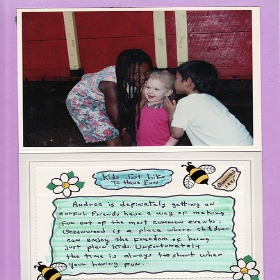 Kids Just Like
To Have Fun
Andrea is definately getting an
earful. Friends have a way of making
fun out of the most common events.
Greenwood is a place where children
can enjoy the freedom of being
just plain kids. Unfortunately
the time is always too short when
your having fun.